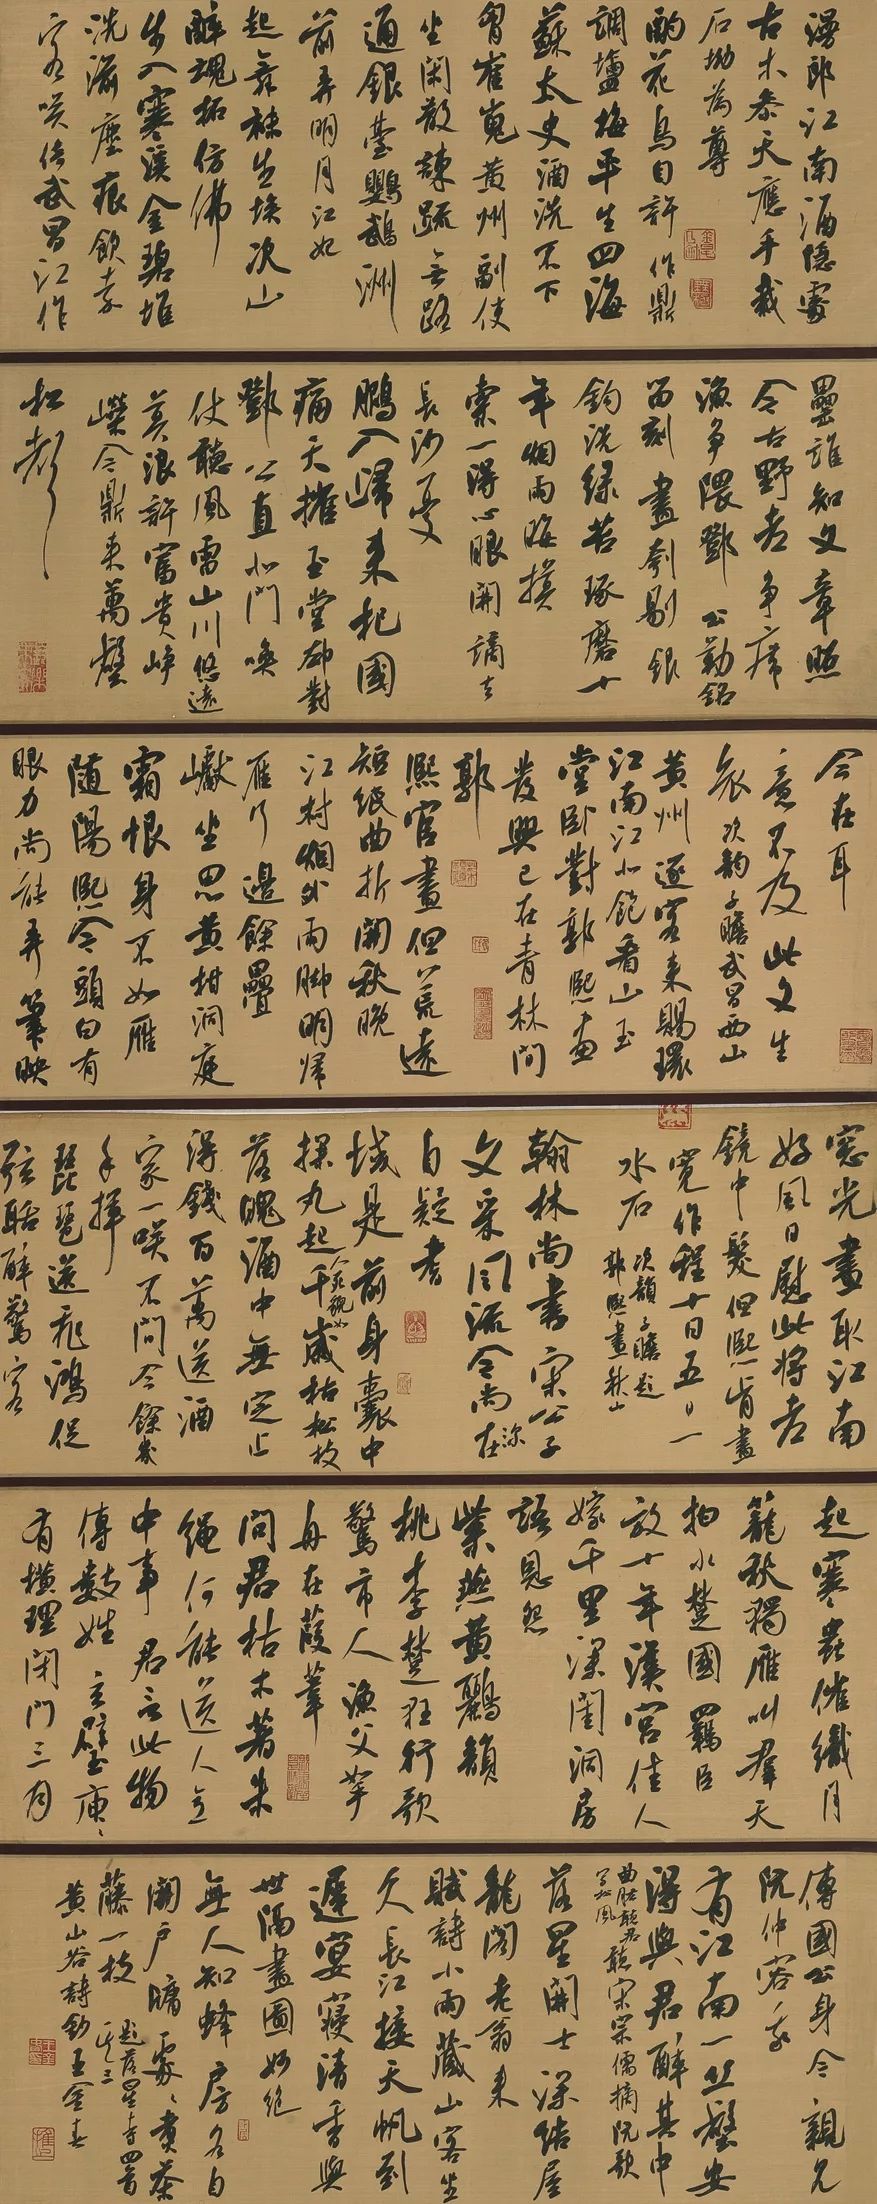 漫郎江南酒隱處
古木參天應手栽
石坳為尊
酌花鳥自許作鼎
調鹽梅平生四海
蘇太史酒洗不下
胷崔嵬黃州副使
坐閑散諫疏無路
通銀臺鸚鵡洲
前弄明月江妃
起舞襪生埃次山
醉魂招仿佛
步入寒溪金碧堆
洗濯塵痕飲嘉
客笑倚武昌江作
罍誰知文章照
今古野老爭席
漁爭隈鄧公勤銘
留刻畫刳剔銀
鈎洗綠苔琢磨十
年煙雨晦摸
索一得心眼開謫去
長沙憂
鵬入歸來杞國
痛天摧玉堂卻對
鄧公直北門喚
仗聽風雷山川悠遠
莫浪許富貴崢
嶸今鼎來萬壑
松聲
今在耳
意不及此文生
哀次韵子瞻武昌西山
黃州逐客未賜環
江南江北飽看山玉
堂卧對郭熙畫
發興已在青林間
郭
熙官畫但荒遠
短紙曲折開秋晚
江村煙外雨脚明歸
雁行邊餘疊
巘坐思黃柑洞庭
霜恨身不如雁
隨陽熙今頭白有
眼力尚能弄筆映
窓光畫取江南
好風日慰此將老
鏡中髮但熙肯畫
寬作程十日五日一
水石次韻子瞻題
郭熙畫秋山
翰林尚書宋公子
文采風流今尚在
自疑耆
域是前身囊中
探丸起人死貌如
千歲枯松枝
落魄酒中無定止
得錢百萬送酒
家一笑不問今餘幾
手揮
琵琶送飛鴻促
弦聒醉驚客
起寒蟲催織月
籠秋獨雁叫羣天
拍水楚國羈臣
放十年漢宮佳人
嫁千里深閨洞房
語恩怨
紫燕黃鸝韻
桃李楚狂行歌
驚市人漁父拏
舟在葭葦
問君枯木著朱
繩何能道人意
中事君言此物
傳數姓玄璧庚庚
有橫理閉門三月
傳國公身今親見
阮仲容我
有江南一丘壑安
得與君醉其中
曲肱聽君
寫松風聽宋宗儒摘阮歌
落星開士深結屋
龍閣老翁來
賦詩小雨藏山客坐
久長江接天帆到
遲宴寢清香與
世隔畫圖妙絕
無人知蜂房各自
開戶牖處處煮茶
藤一枝題落星寺四首
其三
黃山谷詩鈔王金春